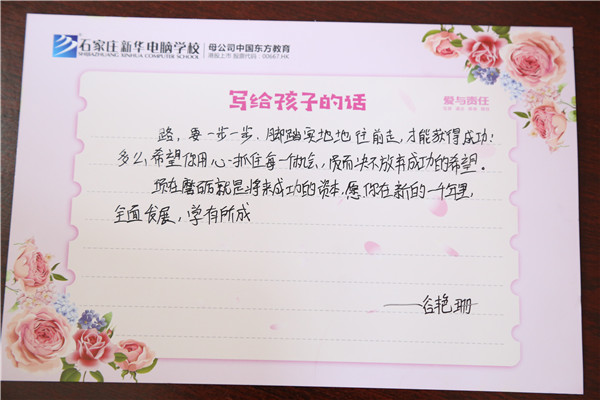 石家庄新华电脑学校
SHIJIAZHUANG XINHUA COMPUTER SCHOOL
母公司中国东方教育
港股上市 股票代码：00667.HK
写给孩子的话
爱与责任
路，要一步一步、脚踏实地地往前走，才能获得成功！
多么希望你用心抓住每一个机会，质而决不放弃成功的希望。
现在磨砺就是将来成功的资本，愿你在新的一年里，
全面发展，学有所成
——谷艳珊